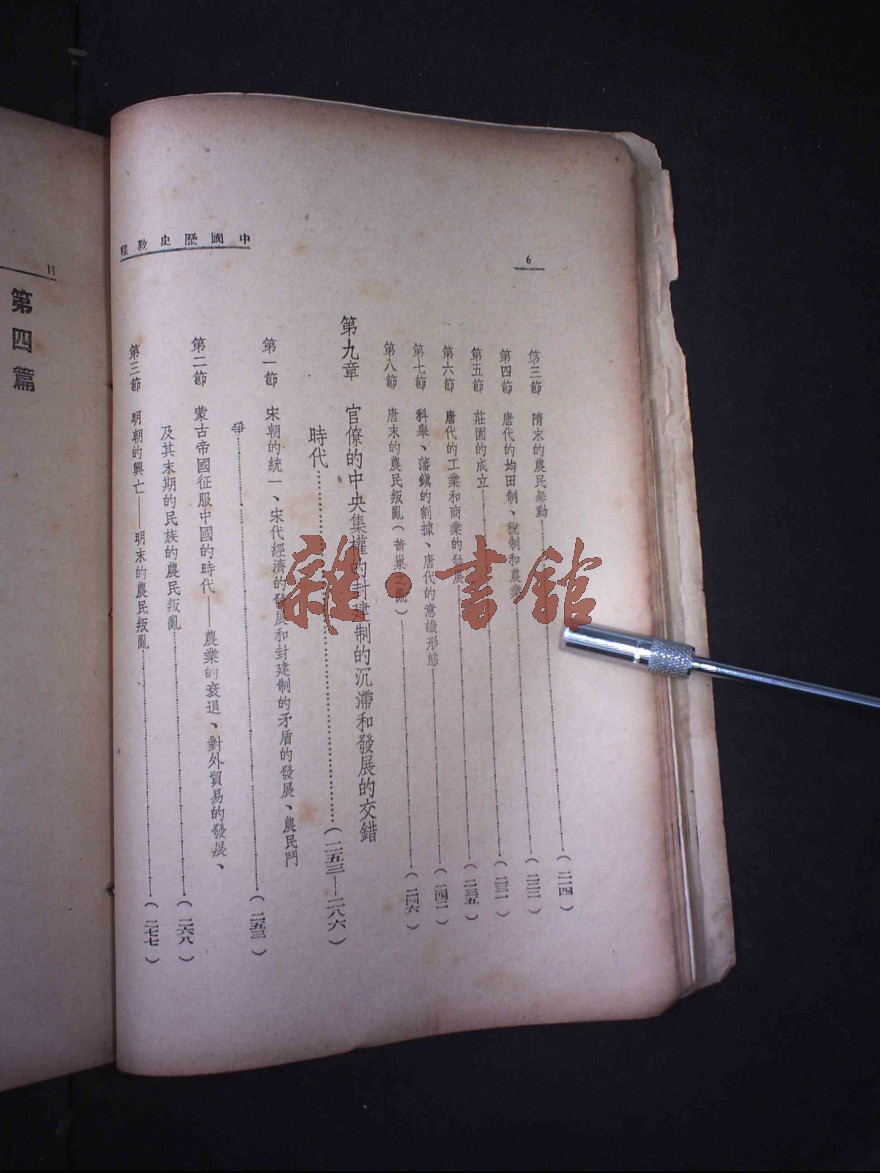 中國歷史教程
6
第三節 隋末的農民暴動……(二一四)
第四節 唐代的均田制、稅制和農業……(二二二)
第五節 莊園的成立……(二三一)
第六節 唐代的工業和商業的發展……(二三五)
第七節 科舉、藩鎮的割據、唐代的意識形態……(二四二)
第八節 唐末的農民叛亂(黃巢之亂)……(二四六)
第九章 官僚的中央集權的封建制的沉滯和發展的交錯
時代……(二五三—二八六)
第一節 宋朝的統一、宋代經濟的發展和封建制的矛盾的發展、農民鬥
爭……(二五三)
第二節 蒙古帝國征服中國的時代——農業的衰退、對外貿易的發展、
及其末期的民族的農民叛亂……(二六八)
第三節 明朝的興亡——明末的農民叛亂……(二七七)
第四篇
雜·書館